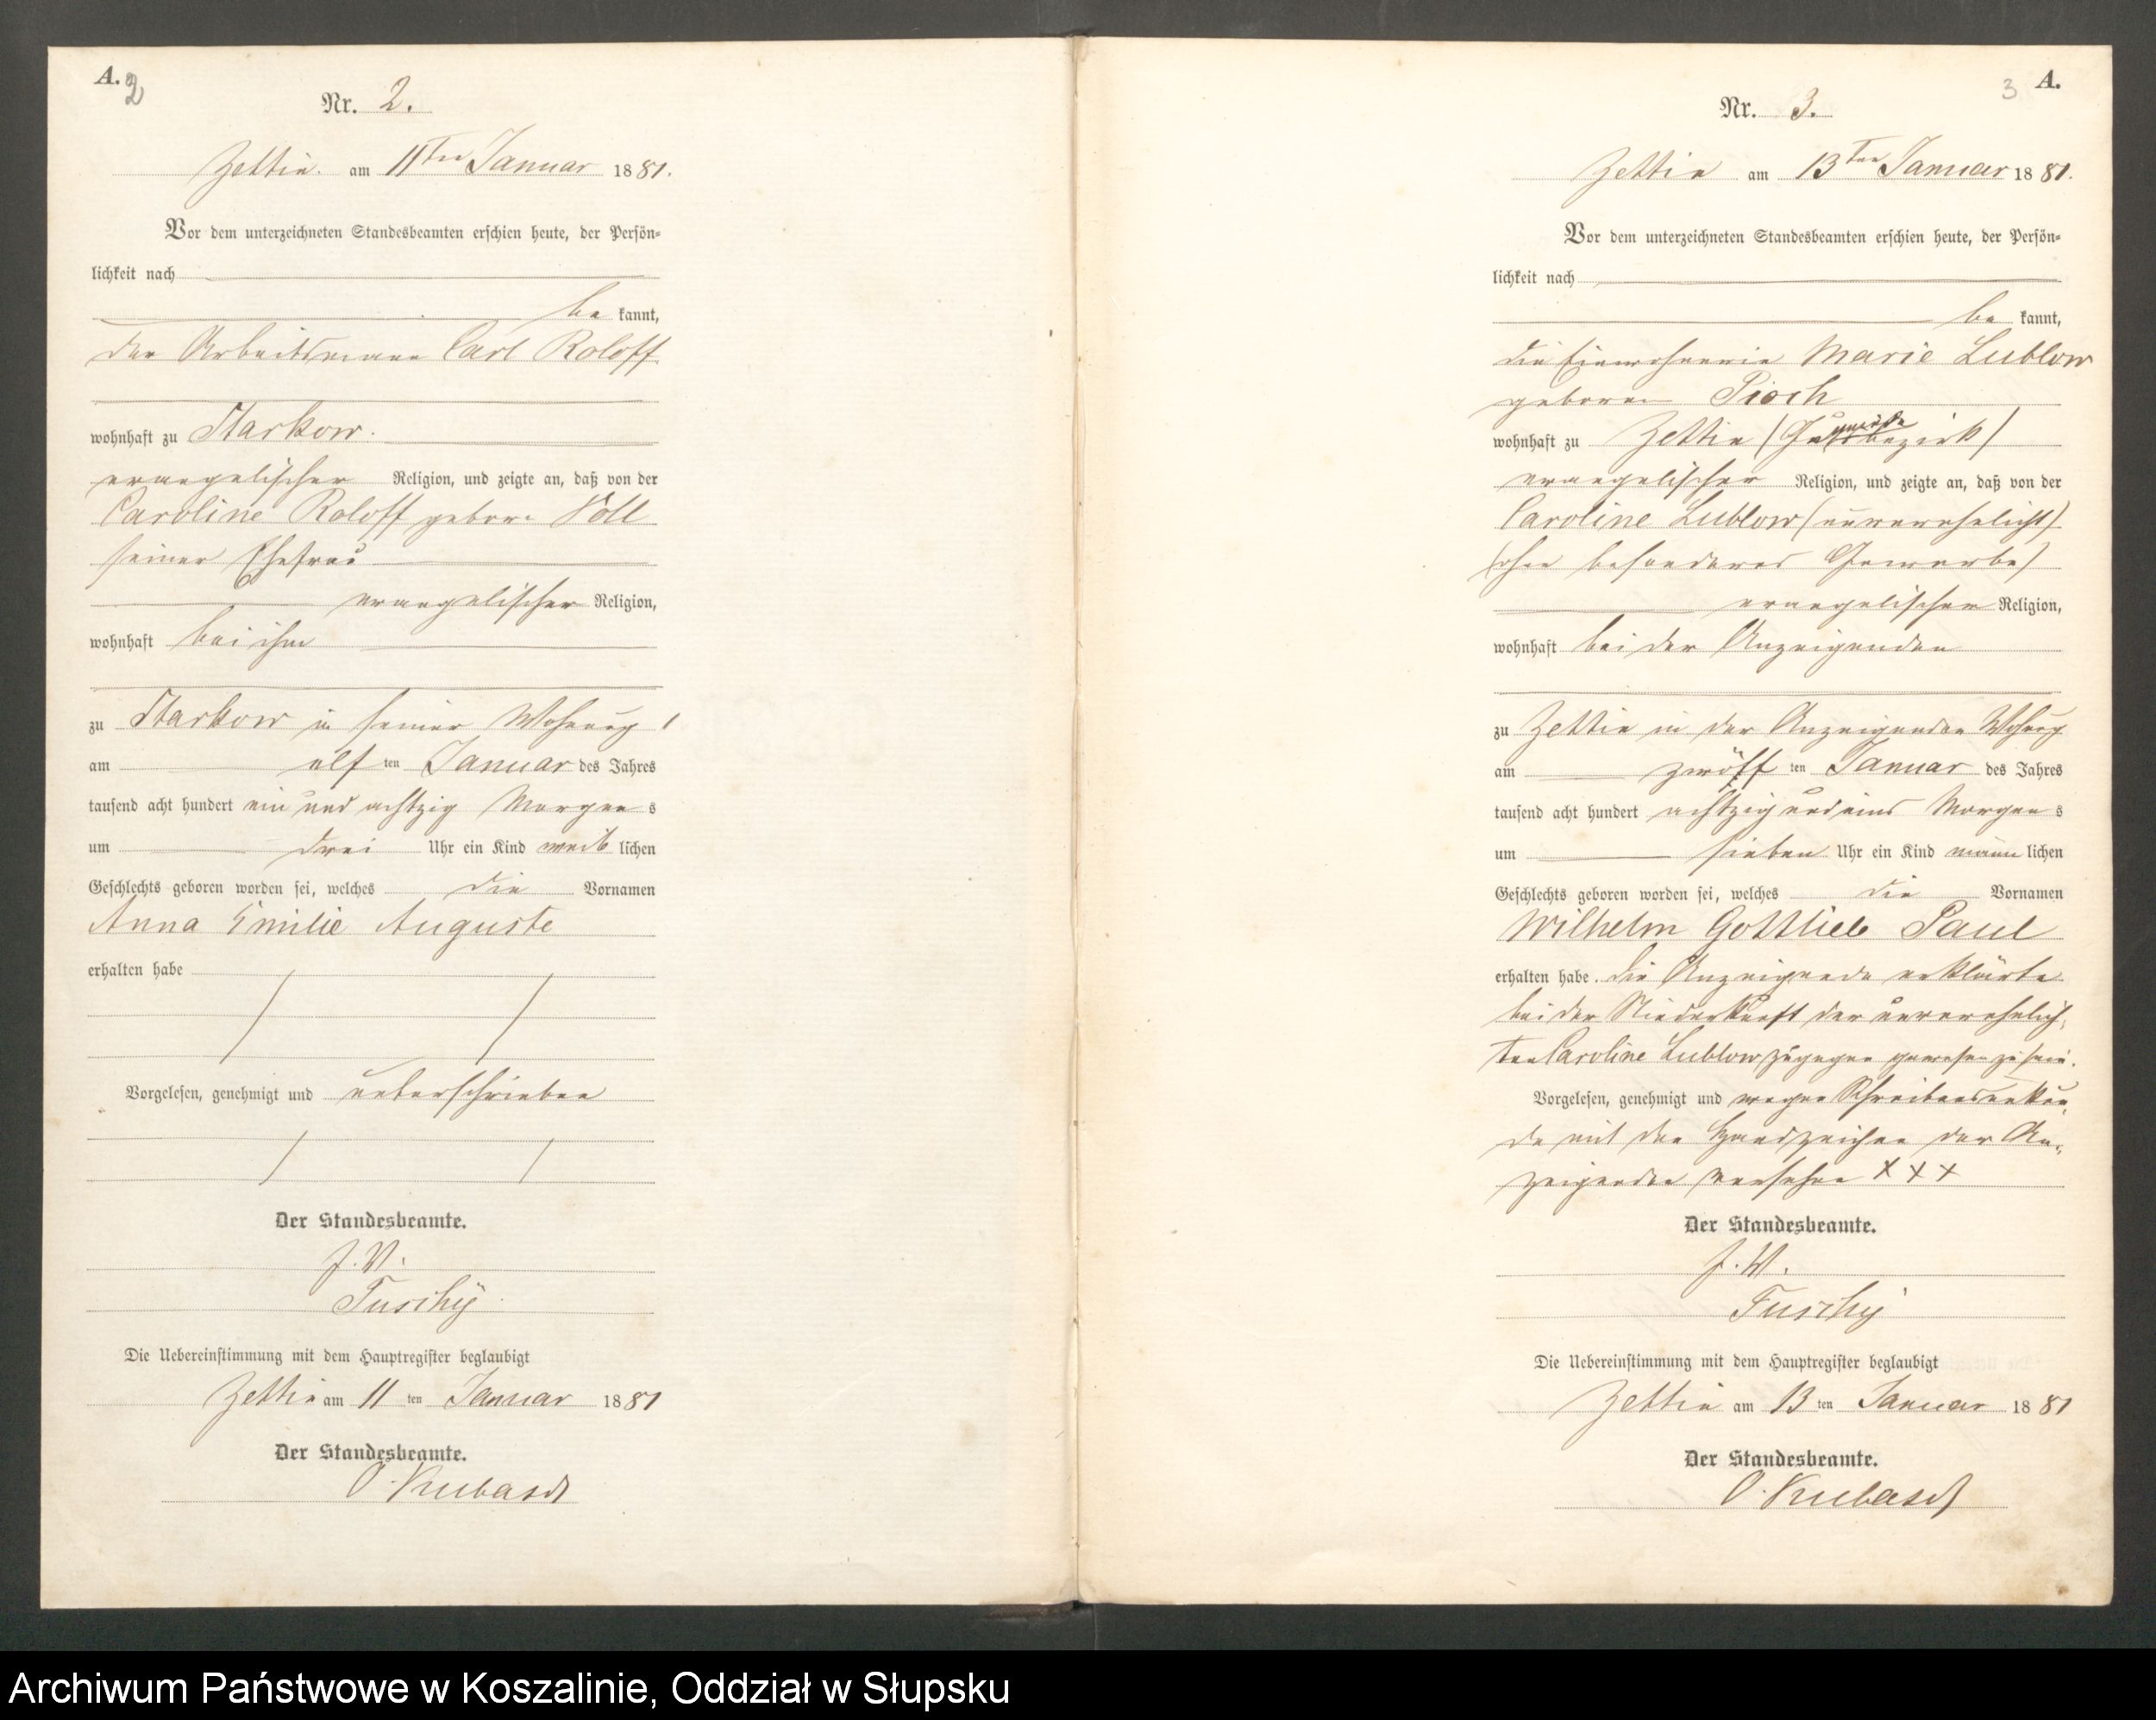 A. 2
Nr. 2.
Zettin. am 11ten Januar 1881.
Vor dem unterzeichneten Standesbeamten erschien heute, der Persön-
lichkeit nach
be kannt,
der Arbeitsmann Carl Roloff
wohnhaft zu Starkow.
evangelischer Religion, und zeigte an, daß von der
Caroline Roloff geborn Noll
seiner Ehefrau
evangelischer Religion,
wohnhaft bei ihm
zu Starkow in seiner Wohnung
am elf ten Januar des Jahres
tausend acht hundert ein und achtzig Morgen s
um drei Uhr ein Kind weib lichen
Geschlechts geboren worden sei, welches die Vornamen
Anna Emilie Auguste
erhalten habe
Vorgelesen, genehmigt und unterschrieben
Der Standesbeamte.
J. V.
Tuschy
Die Uebereinstimmung mit dem Hauptregister beglaubigt
Zettin am 11 ten Januar 1881
Der Standesbeamte.
O. Kubasch
3 A.
Nr. 3.
Zettin am 13ten Januar 1881.
Vor dem unterzeichneten Standesbeamten erschien heute, der Persön-
lichkeit nach
be kannt,
die Einwohnerin Marie Lublow
geboren Pioch
wohnhaft zu Zettin
evangelischer Religion, und zeigte an, daß von der
Caroline Lublow (unverehelicht)
(ohne besonderes Gewerbe)
evangelischer Religion,
wohnhaft bei der Anzeigenden
zu Zettin in der Anzeigenden Wohnung
am zwölf ten Januar des Jahres
tausend acht hundert achtzig und eins Morgen s
um sieben Uhr ein Kind männ lichen
Geschlechts geboren worden sei, welches die Vornamen
Wilhelm Gottlieb Paul
erhalten habe. Die Anzeigende erklärte
bei der Niederkunft der unverehelich-
ten Caroline Lublow zugegen gewesen zu sein.
Vorgelesen, genehmigt und wegen Schreibensunkun-
de mit den Handzeichen der An-
zeigenden versehen XXX
Der Standesbeamte.
J. V.
Tuschy
Die Uebereinstimmung mit dem Hauptregister beglaubigt
Zettin am 13 ten Januar 1881
Der Standesbeamte.
O. Kubasch
Archiwum Państwowe w Koszalinie, Oddział w Słupsku